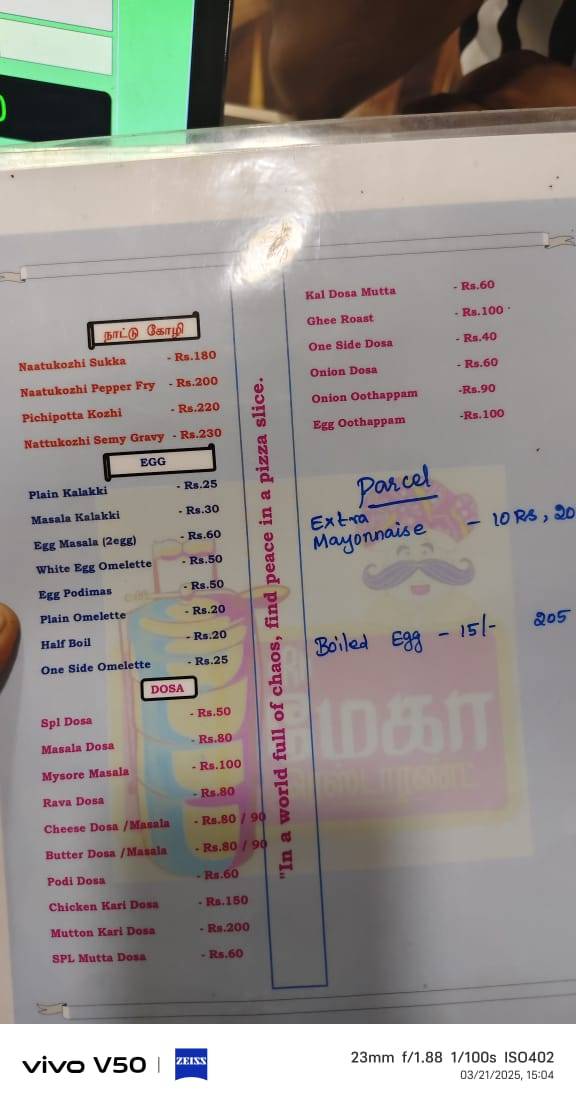 நாட்டு கோழி
Naatukozhi Sukka - Rs.180
Naatukozhi Pepper Fry - Rs.200
Pichipotta Kozhi - Rs.220
Nattukozhi Semy Gravy - Rs.230
EGG
Plain Kalakki - Rs.25
Masala Kalakki - Rs.30
Egg Masala (2egg) - Rs.60
White Egg Omelette - Rs.50
Egg Podimas - Rs.50
Plain Omelette - Rs.20
Half Boil - Rs.20
One Side Omelette - Rs.25
DOSA
Spl Dosa - Rs.50
Masala Dosa - Rs.80
Mysore Masala - Rs.100
Rava Dosa - Rs.80
Cheese Dosa /Masala - Rs.80 / 90
Butter Dosa /Masala - Rs.80 / 90
Podi Dosa - Rs.60
Chicken Kari Dosa - Rs.150
Mutton Kari Dosa - Rs.200
SPL Mutta Dosa - Rs.60
"In a world full of chaos, find peace in a pizza slice.
Kal Dosa Mutta - Rs.60
Ghee Roast - Rs.100
One Side Dosa - Rs.40
Onion Dosa - Rs.60
Onion Oothappam -Rs.90
Egg Oothappam -Rs.100
Parcel
Extra
Mayonnaise - 10 RS, 20
Boiled Egg - 15/- 205
vivo V50 | ZEISS
23mm f/1.88 1/100s ISO402
03/21/2025, 15:04